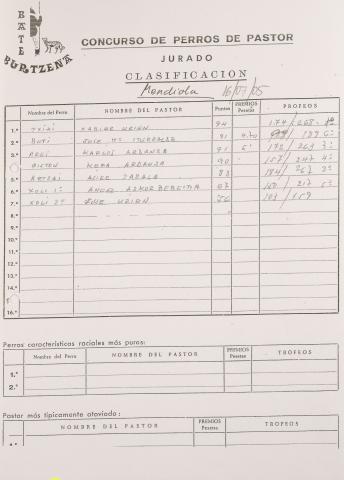 BATE
BURTZEÑA
CONCURSO DE PERROS DE PASTOR
JURADO
CLASIFICACION
Mendiola 16/07/05
Nombre del Perro NOMBRE DEL PASTOR Puntos PREMIOS Pesetas TROFEOS
1.º XABIER URIEN 94 174/268
2.º BUTI JOSE Mª 91 189 6º
3.º ARGI KARLOS ARLANZA 91 172/263 3º
KEPA ARLANZA 90 157/247 4º
5.º ALEX ZABALA 83 184/267 2º
6.º XOLI 1º ANGEL AZKORBEBEITIA 67 150/217 5º
7.º XOLI 2º JOSE URIEN 56 103/159
8.º
9.º
10.º
11.º
12.º
13.º
14.º
16.º
Perros características raciales más puras:
Nombre del Perro NOMBRE DEL PASTOR PREMIOS Pesetas TROFEOS
1.º
2.º
Pastor más típicamente ataviado:
NOMBRE DEL PASTOR PREMIOS Pesetas TROFEOS